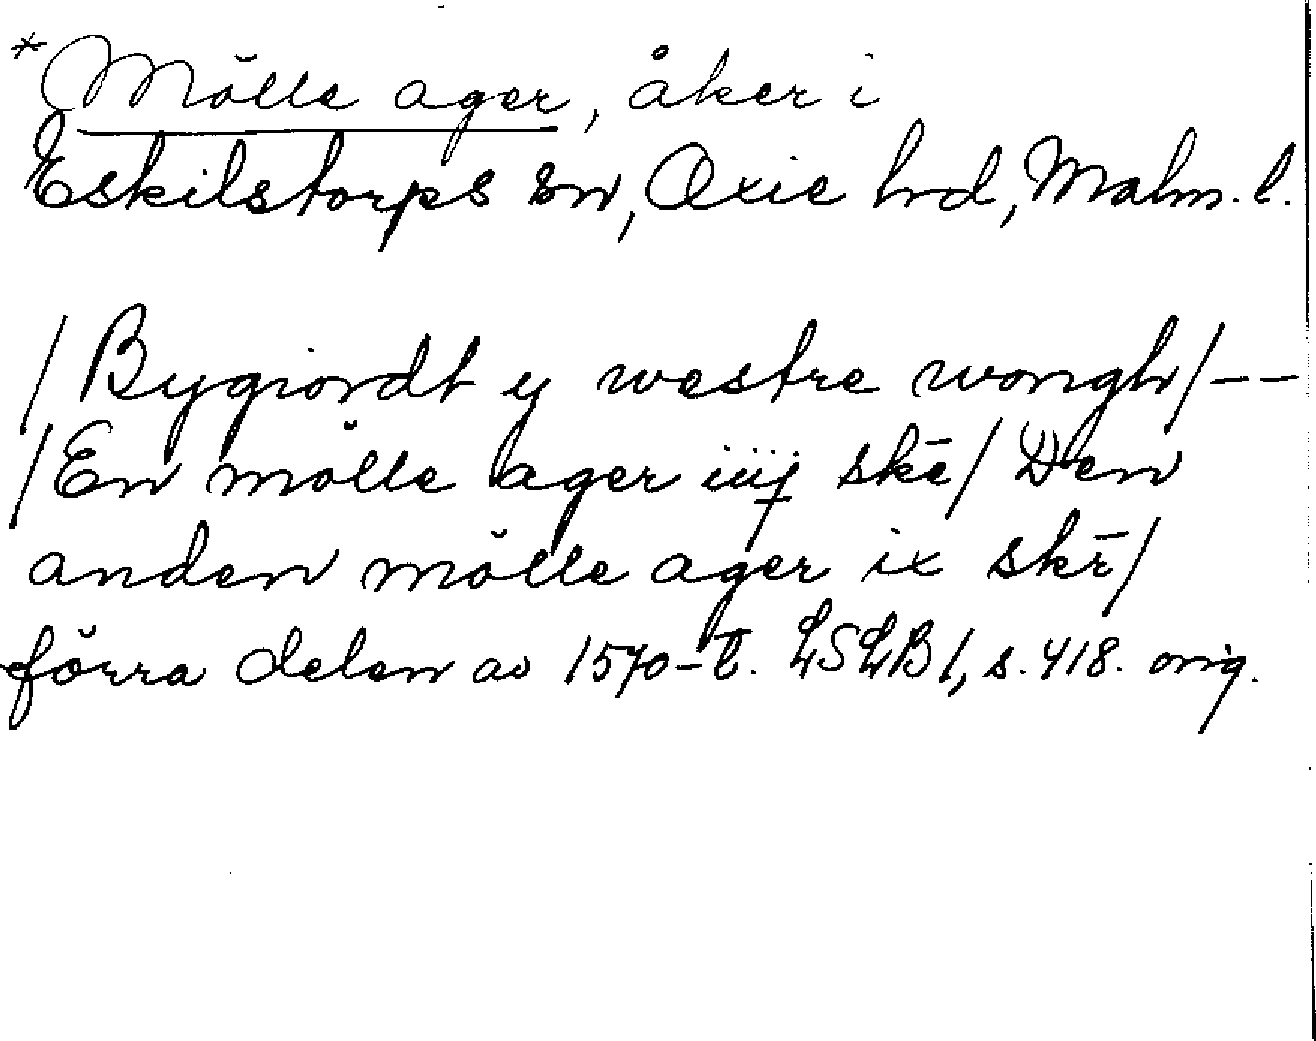 *Mölle ager, åker i
Eskilstorps sn, Oxie hrd, Malm. l.
/Bygiordt y westre wongh/--
/En mölle ager iiij skē/ Den
anden mölle ager ix skr̄/
förra delen av 1570-t. LSLB 1, s. 418. orig.